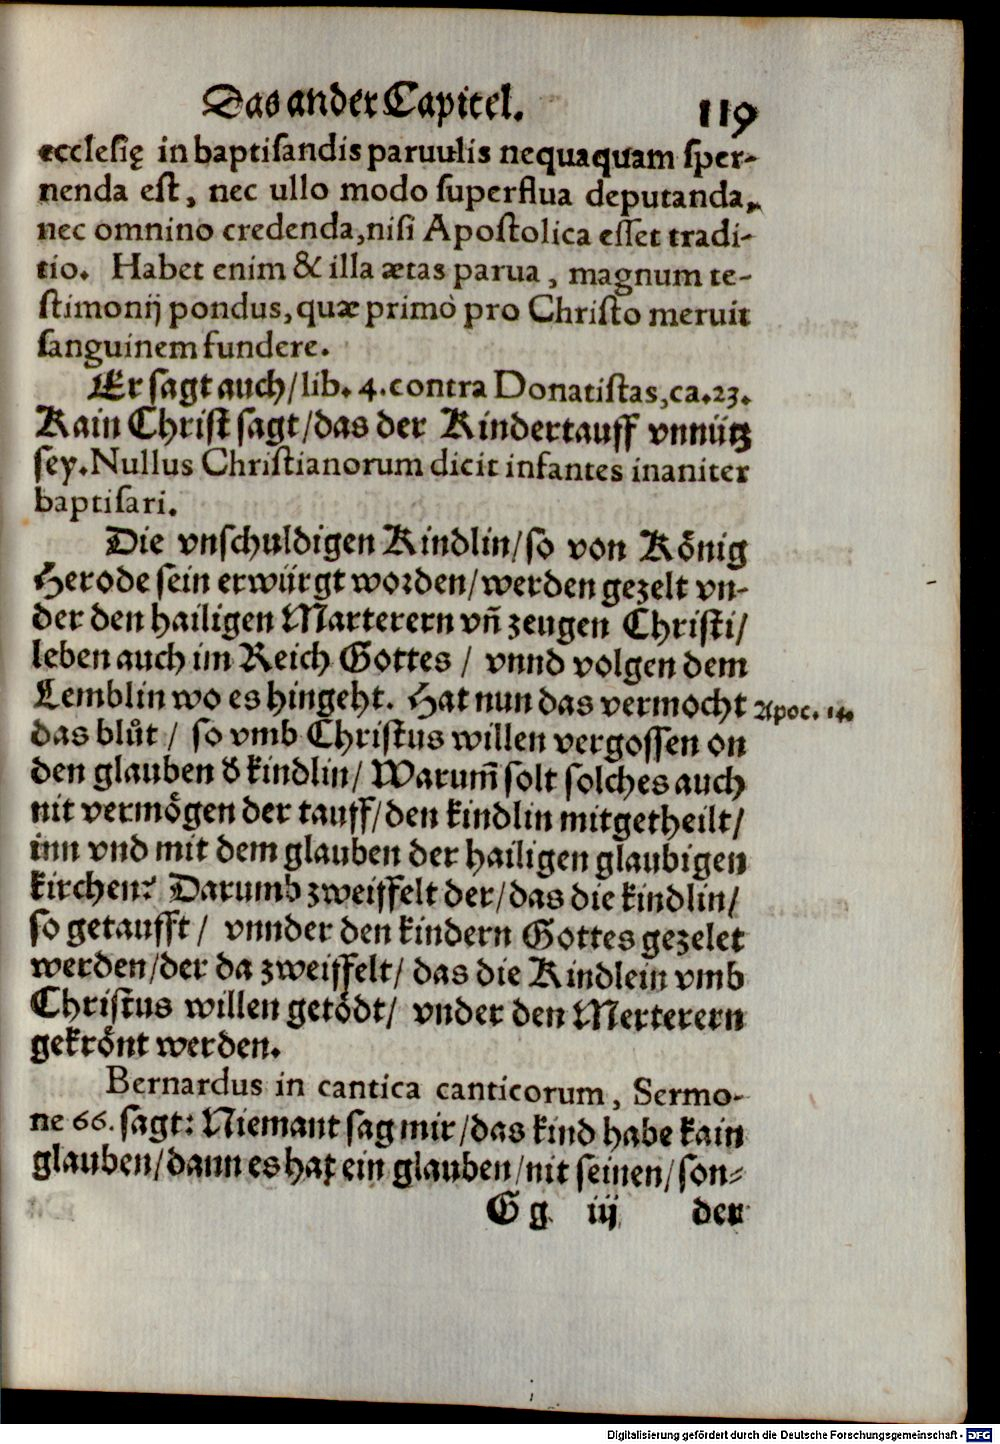 Das ander Capitel. 119
ecclesię in baptisandis paruulis nequaquam sper-
nenda est, nec ullo modo superflua deputanda,
nec omnino credenda, nisi Apostolica esset tradi-
tio. Habet enim & illa ætas parua, magnum te-
stimonij pondus, quæ primò pro Christo meruit
sanguinem fundere.
Er sagt auch/ lib. 4. contra Donatistas, ca. 23.
Kain Christ sagt/ das der Kindertauff vnnütz
sey. Nullus Christianorum dicit infantes inaniter
baptisari.
Die vnschuldigen Kindlin/ so von König
Herode sein erwürgt worden/ werden gezelt vn-
der den hailigen Marterern vñ zeugen Christi/
leben auch im Reich Gottes/ vnnd volgen dem
Lemblin wo es hingeht. Hat nun das vermocht Apoc. 14.
das blůt/ so vmb Christus willen vergossen on
den glauben d̕ kindlin/ Warum̃ solt solches auch
nit vermögen der tauff/ den kindlin mitgetheilt/
inn vnd mit dem glauben der hailigen glaubigen
kirchen? Darumb zweiffelt der/ das die kindlin/
so getaufft/ vnnder den kindern Gottes gezelet
werden/ der da zweiffelt/ das die Kindlein vmb
Christus willen getödt/ vnder den Merterern
gekrönt werden.
Bernardus in cantica canticorum, Sermo-
ne 66. sagt: Niemant sag mir/ das kind habe kain
glauben/ dann es hat ein glauben/ nit seinen/ son-
G g iij der
Digitalisierung gefördert durch die Deutsche Forschungsgemeinschaft - DFG